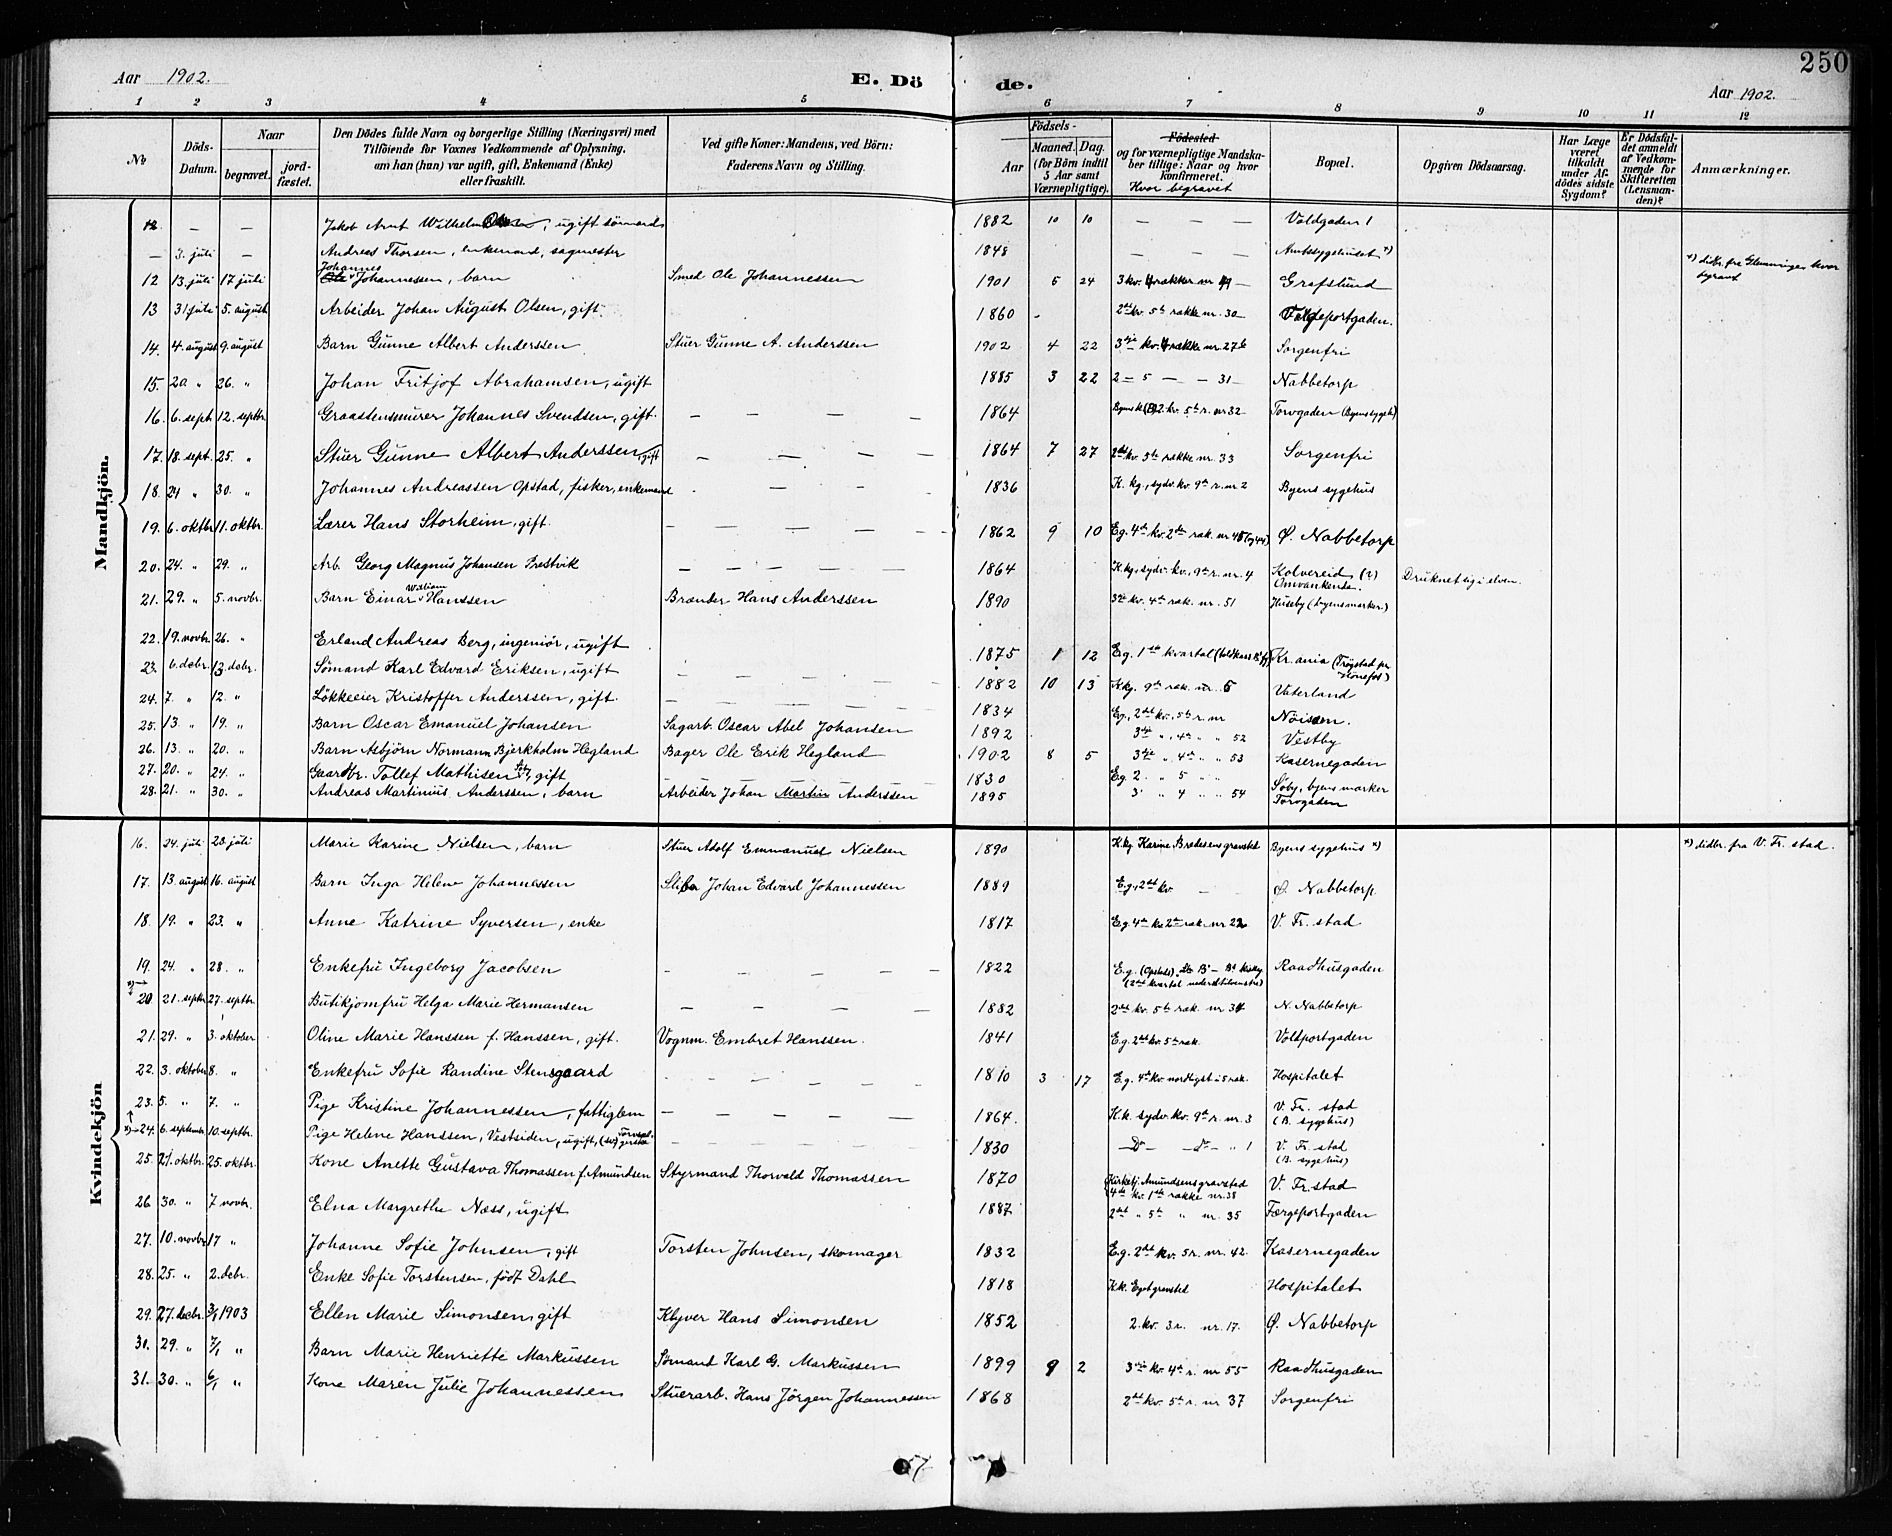 250
Aar 1902. E. Dö de. Aar 1902.
1 2 3 4 5 6 7 8 9 10 11 12
No Döds-Datum. Naar begravet. jord-fæstet. Den Dödes fulde Navn og borgerlige Stilling (Næringsvei) med Tilföiende for Voxnes Vedkommende af Oplysning, om han (hun) var ugift, gift, Enkemand (Enke) eller fraskilt. Ved gifte Koner: Mandens, ved Börn: Faderens Navn og Stilling. Födsels- Aar Maaned. Dag. (for Börn indtil 5 Aar samt Værnepligtige). Födested og for værnepligtige Mandskaber tillige: Naar og hvor konfirmeret. Hvor begravet Bopæl. Opgiven Dödsaarsag. Har Læge været tilkaldt under Afdödes sidste Sygdom? Er Dödsfaldet anmeldt af Vedkommende for Skifteretten (Lensmanden)? Anmærkninger.
Mandkjön.
12 — — Jakob Arnt Wilhelm Olsen, ugift sömand 1882 10 10 — — — Voldgaden 1
— 3. juli — Andreas Thorsen, enkemand, sagmester 1848 — — — Amtssygehuset *) *) didbr. fra Glemminge, hvor begravet
12 13. juli 17 juli Ole Johannes Johannessen, barn Smed Ole Johannessen 1901 5 24 3 kv. 4 rækker nr 49 — Grafslund
13 31 juli 5. august Arbeider Johan August Olsen, gift. 1860 - 2det kv. 5te række nr. 30 — Færgeportgaden.
14. 4. august 9. august Barn Gunne Albert Anderssen Stuer Gunne A. Anderssen 1902 4 22 3die kv. 4 række nr. 27b Sorgenfri
15. 20 " 26. " Johan Fritjof Abrahamsen, ugift 1885 3 22 2 = 5 — — 31 — Nabbetorp
16. 6. sept. 12. septbr. Graastensmurer Johannes Svendsen, gift. — — — — 1864 2. kv. 5te r. nr 32 Torvgaden (Byens sygeh)
17. 18. sept. 25. " Stuer Gunne Albert Anderssen gift — — — — 1864 7 27 2det kv. 5te række nr. 33 Sorgenfri
18. 24 " 30. " Johannes Andreassen Opstad, fisker, enkemand — — 1836 K. kg., sydv. kv. 9de r. nr 2 Byens sygehus
19. 6. oktbr. 11. oktbr. Lærer Hans Storheim, gift. — — — — 1862 9 10 Eg. 4de kv. 2den rak. nr Ø. Nabbetorp
20. 24. " 29. " Arb. Georg Magnus Johansen Prestvik — — — — — 1864 K. kg., sydv. kv., 9de r. nr. 4 Kolvereid (?) Omvankende. Druknet sig i elven.
21. 29. " 5. novbr. Barn Einar William Hanssen Brænder Hans Anderssen 1890 3die kv. 4de rak. nr. 51 Huseby (byens marker.)
22. 19. novbr. 26. " Erland Andreas Berg, ingeniør, ugift 1875 1 12 Eg. 1ste kvartal Kr.ania (Trøgstad pr Hönefos)
23. 6. debr. 13. debr. Sömand Karl Edvard Eriksen, ugift — — — — 1882 10 13 K kg. 9de rak. nr. 5 Vaterland
24. 7. " 12. " Lökkeeier Kristoffer Anderssen, gift. — — — — — 1834 Eg., 2det kv., 5te r. nr Nöisen.
25. 13. " 19. " Barn Oscar Emanuel Johansen Sagarb. Oscar Abel Johansen 1892 3die " , 4de " " 52 Vestby
26. 13. " 20. " Barn Asbjörn Normann Bjerkholm Hegland Bager Ole Erik Hegland 1902 8 5 3die " 4de " " 53 Kasernegaden
27. 20. " 24. " Gaardbr. Tollef Mathisen , gift 1830 Eg. 2. " 5 " " Söby, byens marker
28. 21. " 30. " Andreas Martinius Anderssen, barn Arbeider Johan Martin Anderssen 1895 3' " 4 " " 54 Torvgaden
Kvindekjön
16. 24. juli 28. juli Marie Karine Nielsen, barn Stuer Adolf Emmanuel Nielsen 1890 K kg Karine Bredesens gravsted Byens sygehus *) *) didbr. fra V. Fr. stad.
17. 13. august 16. august Barn Inga Helene Johannessen Johan Edvard Johannessen 1889 Eg., 2det kv — — Ø. Nabbetorp.
18. 19. " 23. " Anne Katrine Syversen, enke 1817 Eg. 4de kv 2den rak. nr 22 V. Fr. stad
19. 24. " 28. " Enkefru Ingeborg Jacobsen — — — — — 1822 E.g. (Opstads) (2det kvartal ) Raadhusgaden
20 21. septbr. 27. septbr. Butikjomfru Helga Marie Hermansen — — — — 1882 2det kv. 5te rak. nr. 34 N. Nabbetorp
21. 29. " 3. oktober Oline Marie Hanssen f. Hanssen, gift. Vognm. Embret Hanssen. 1841 E.g. 2det kv. 5te rak. Voldportgaden
22. 3. oktober 8. " Enkefru Sofie Randine Stensgaard — — — — — 1810 3 17 E.g. 4de kv. nordligst i 5 rak. Hospitalet
23. 5. " 7. " Pige Kristine Johannessen, fattiglem — — — — — 1864. K.k. sydv. kv. 9de r. nr. 3 V. Fr. stad (B. sygehus)
24. 6. september 10. septbr. Pige Helene Hanssen, Vestsiden, ugift, — — — — — 1830 — Do — — Do — " 1 V. Fr. stad (B. sygehus)
25. 21. oktbr. 25. oktbr. Kone Anette Gustava Thomassen f. Amundsen Styrmand Thorvald Thomassen 1870 Kirketj. Amundsens gravsted 4de kv. 1ste række nr. 38 V. Fr. stad
26. 30. " 7 novbr. Elna Margrethe Næss, ugift 1887 2det " 5te " nr. 35 Færgeportgaden
27. 10. novbr. 17 " Johanne Sofie Johnsen, gift Torsten Johnsen, skomager 1832 E.g. 2det kv. 5 r. nr. 42. Kasernegaden
28. 25. " 2. debr. Enke Sofie Torstensen, född Dahl 1818 K.k. Eget gravsted Hospitalet
29. 27. decbr. 3/1 1903 Ellen Marie Simonsen, gift Klyver Hans Simonsen 1852 2. kv. 3 r. nr. 17. Ø. Nabbetorp
30. 29. " 7/1 " Barn Marie Henriette Markussen Sømand Karl G. Markussen 1899 9 2 3die kv. 4de r. nr 55 Raadhusgaden
31. 30. " 6/1 " Kone Maren Julie Johannessen Stuerarb. Hans Jörgen Johannessen 1868 2det kv. 5te r. nr 37 Sorgenfri